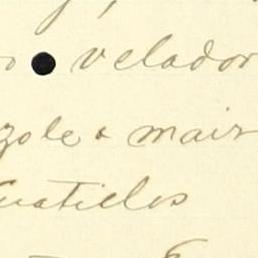 o velador
zole & mair
uatielos